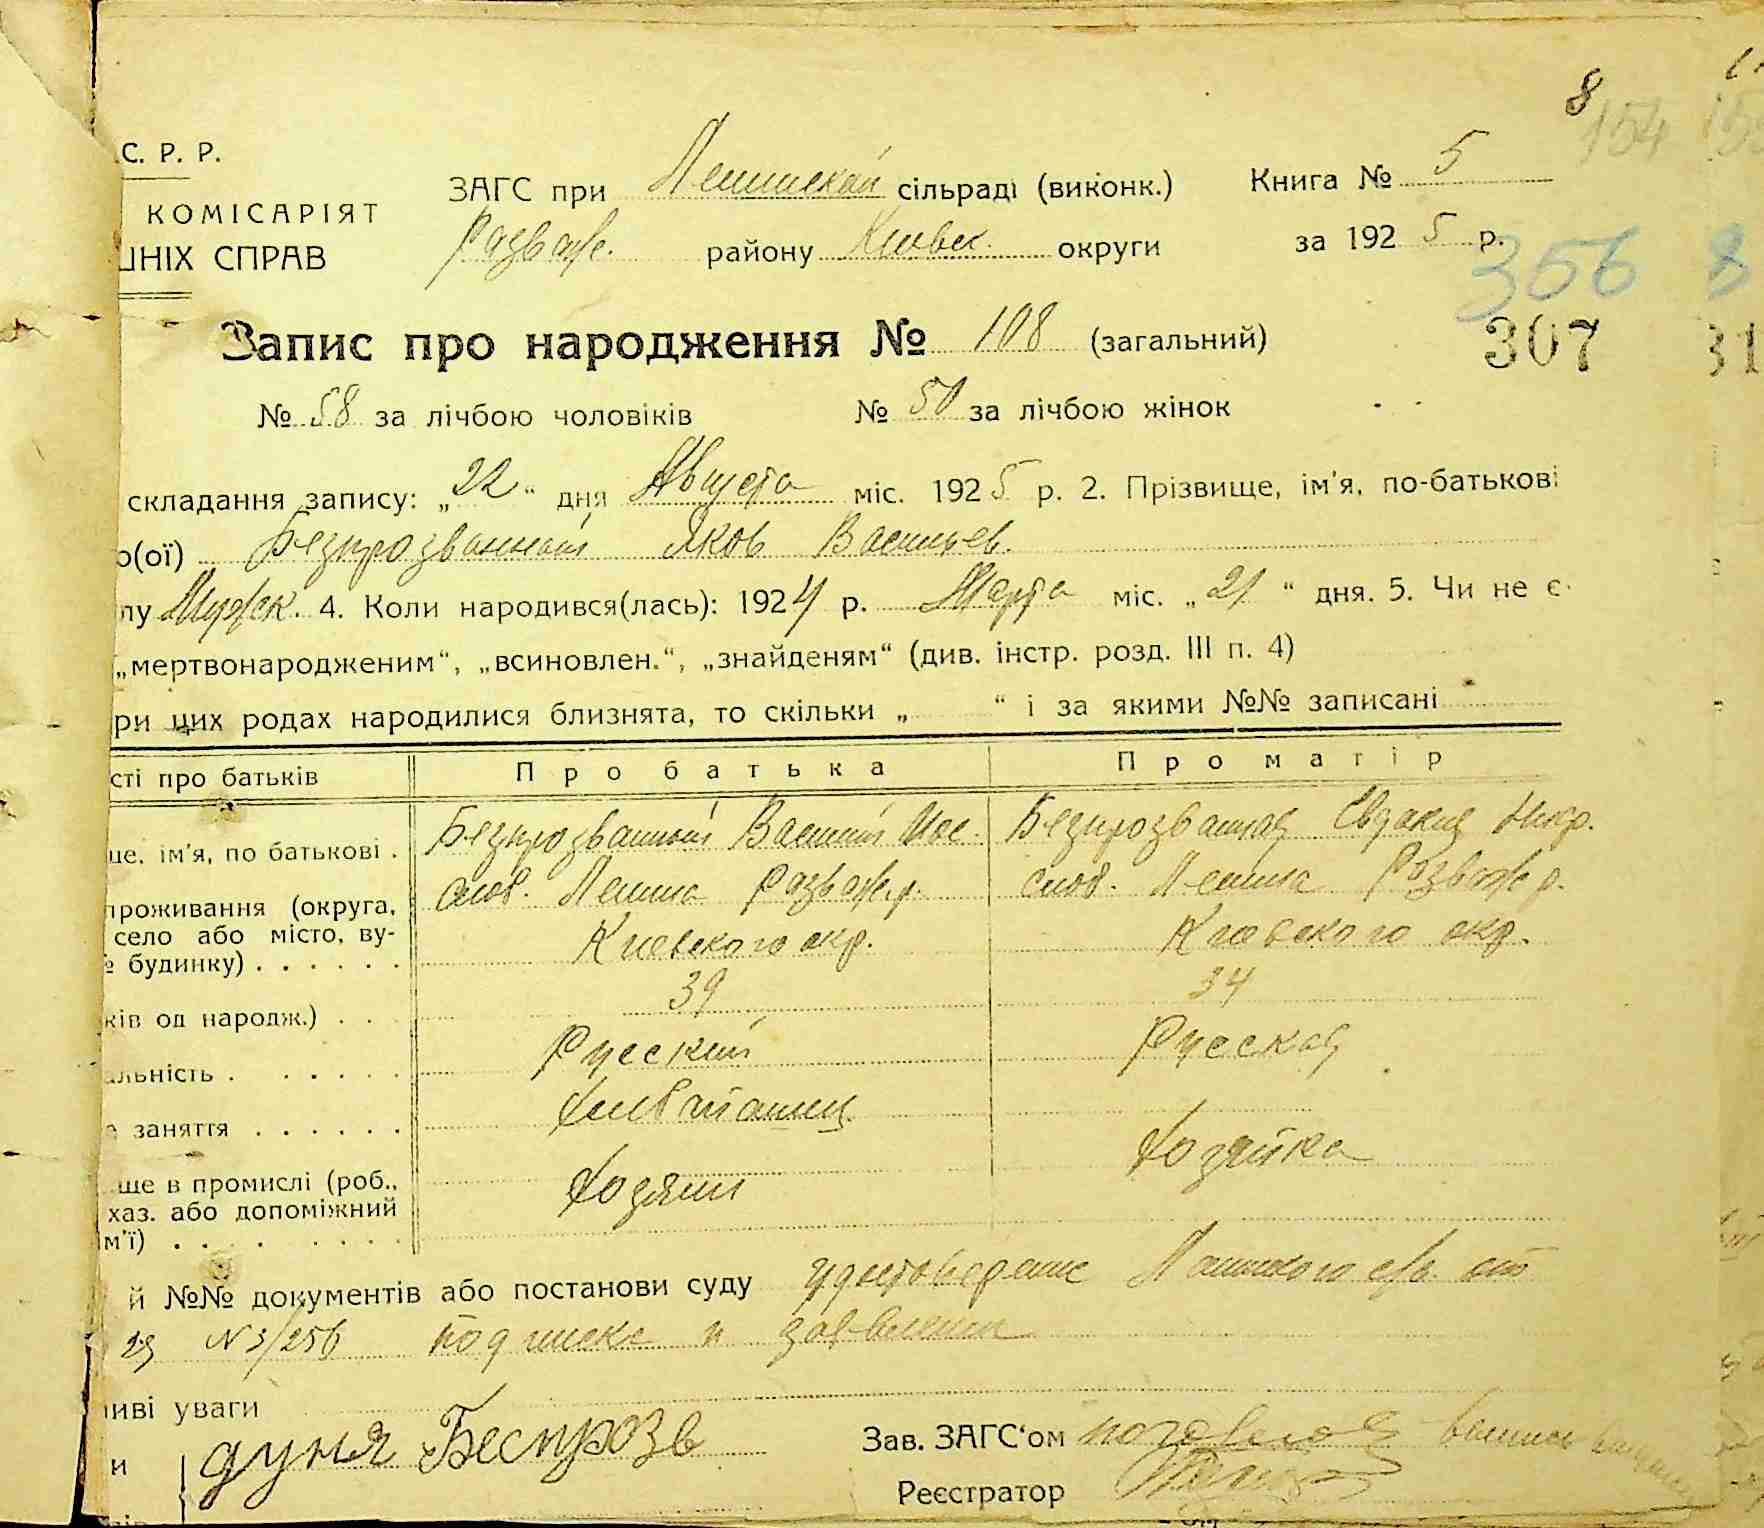 8
154
С. Р. Р.
КОМІСАРІЯТ
ШНІХ СПРАВ
ЗАГС при Ленинской сільраді (виконк.)
Розваж. району Киевск. округи
Книга № 5
за 1925 р.
356 8
307 31
Запис про народження № 108 (загальний)
№ 58 за лічбою чоловіків № 50 за лічбою жінок
складання запису: „22“ дня Августа міс. 1925 р. 2. Прізвище, ім'я, по-батькові
о(ої) Безпрозванный Яков Васильев.
лу Мужск. 4. Коли народився(лась): 1924 р. Марта міс. „21“ дня. 5. Чи не є
„мертвонародженим“, „всиновлен.“, „знайденям“ (див. інстр. розд. III п. 4)
ри цих родах народилися близнята, то скільки „ “ і за якими №№ записані
сті про батьків Про батька Про матір
ще, ім'я, по батькові . Безпрозванный Василий Безпрозванная Евдокия
проживання (округа, слоб. Ленина Розваж р. слоб. Ленина Розваж р.
село або місто, ву-
№ будинку) . . . . . . Киевского окр. Киевского окр.
ків од народж.) . . 39 34
альність . . . . . . Русский Русская
е заняття . . . . . . Хлебопашец
ще в промислі (роб., Хозяин Хозяйка
хаз. або допоміжний
м'ї) . . . . . . .
й №№ документів або постанови суду удостоверение от
№ 3/256 подписка и заявление
иві уваги
и дуня Беспрозв
Зав. ЗАГС'ом
Реєстратор